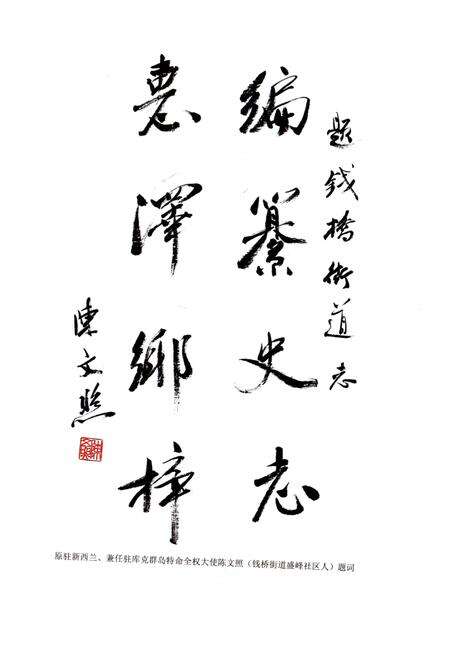 题钱橋街道志
编纂史志
惠澤鄉梓
陈文照
原驻新西兰、兼任驻库克群岛特命全权大使陈文照（钱桥街道盛峰社区人）题词